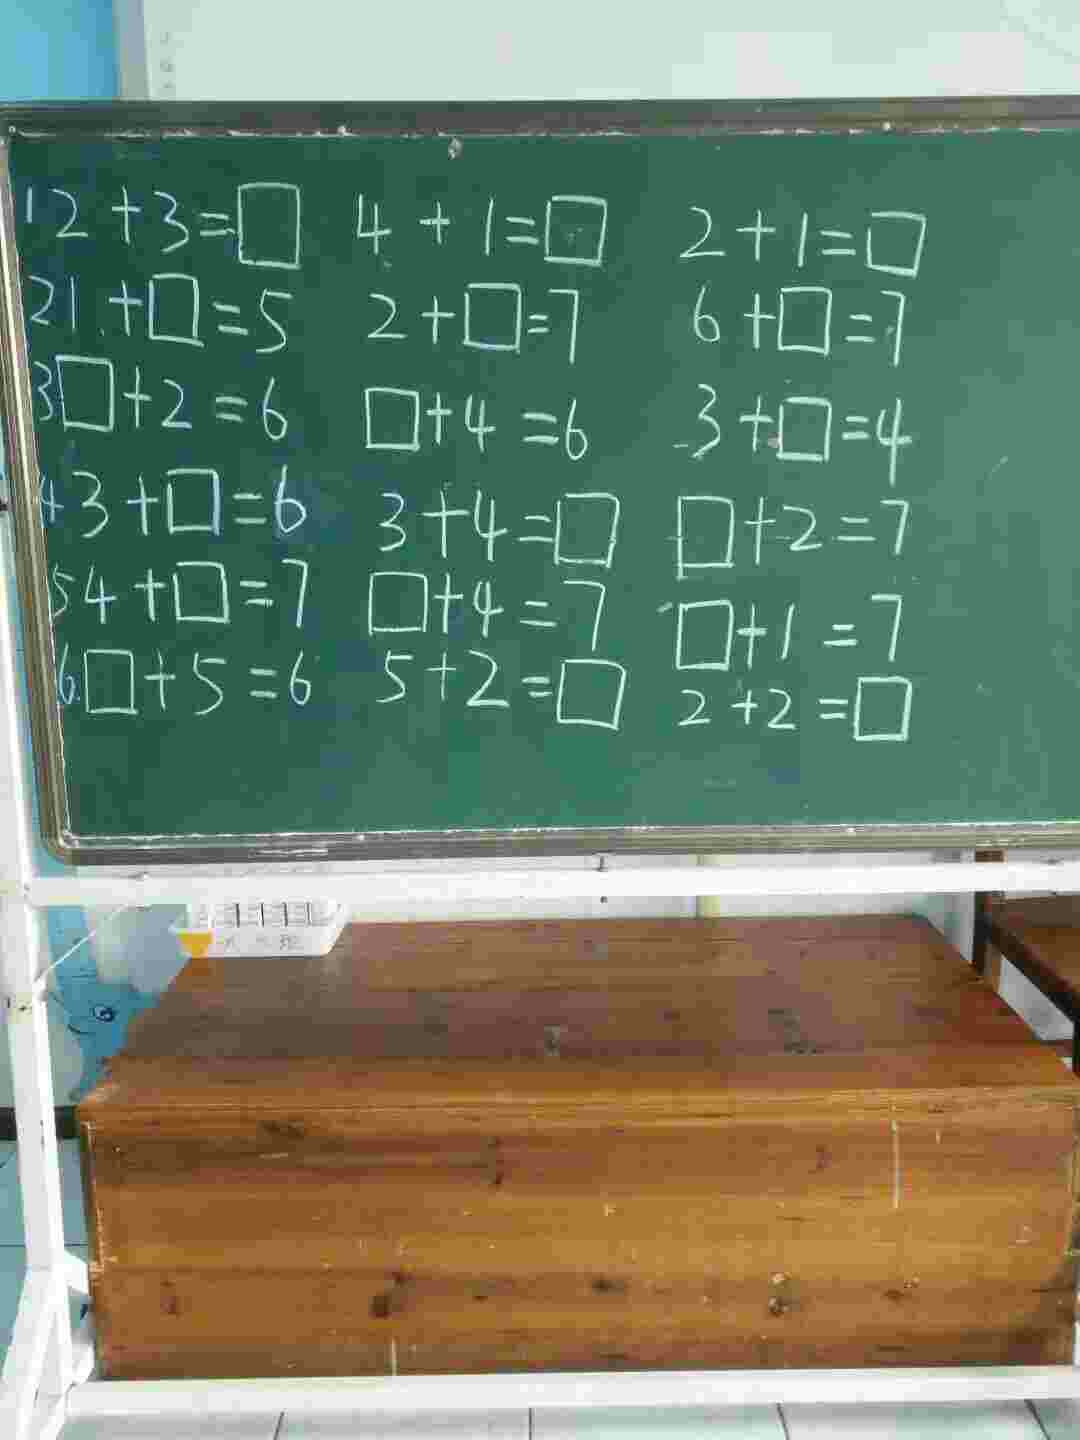 12 + 3 = □ 4 + 1 = □ 2 + 1 = □
21 + □ = 5 2 + □ = 7 6 + □ = 7
3 □ + 2 = 6 □ + 4 = 6 3 + □ = 4
4 3 + □ = 6 3 + 4 = □ □ + 2 = 7
5 4 + □ = 7 □ + 4 = 7 □ + 1 = 7
6. □ + 5 = 6 5 + 2 = □ 2 + 2 = □